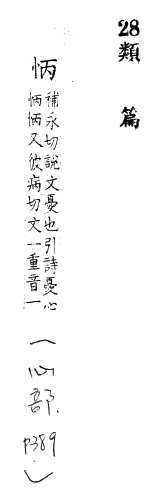 28類篇
怲
補永切說文憂也引詩憂心
怲怲又彼病切文一重音一
(心部.
P389
)